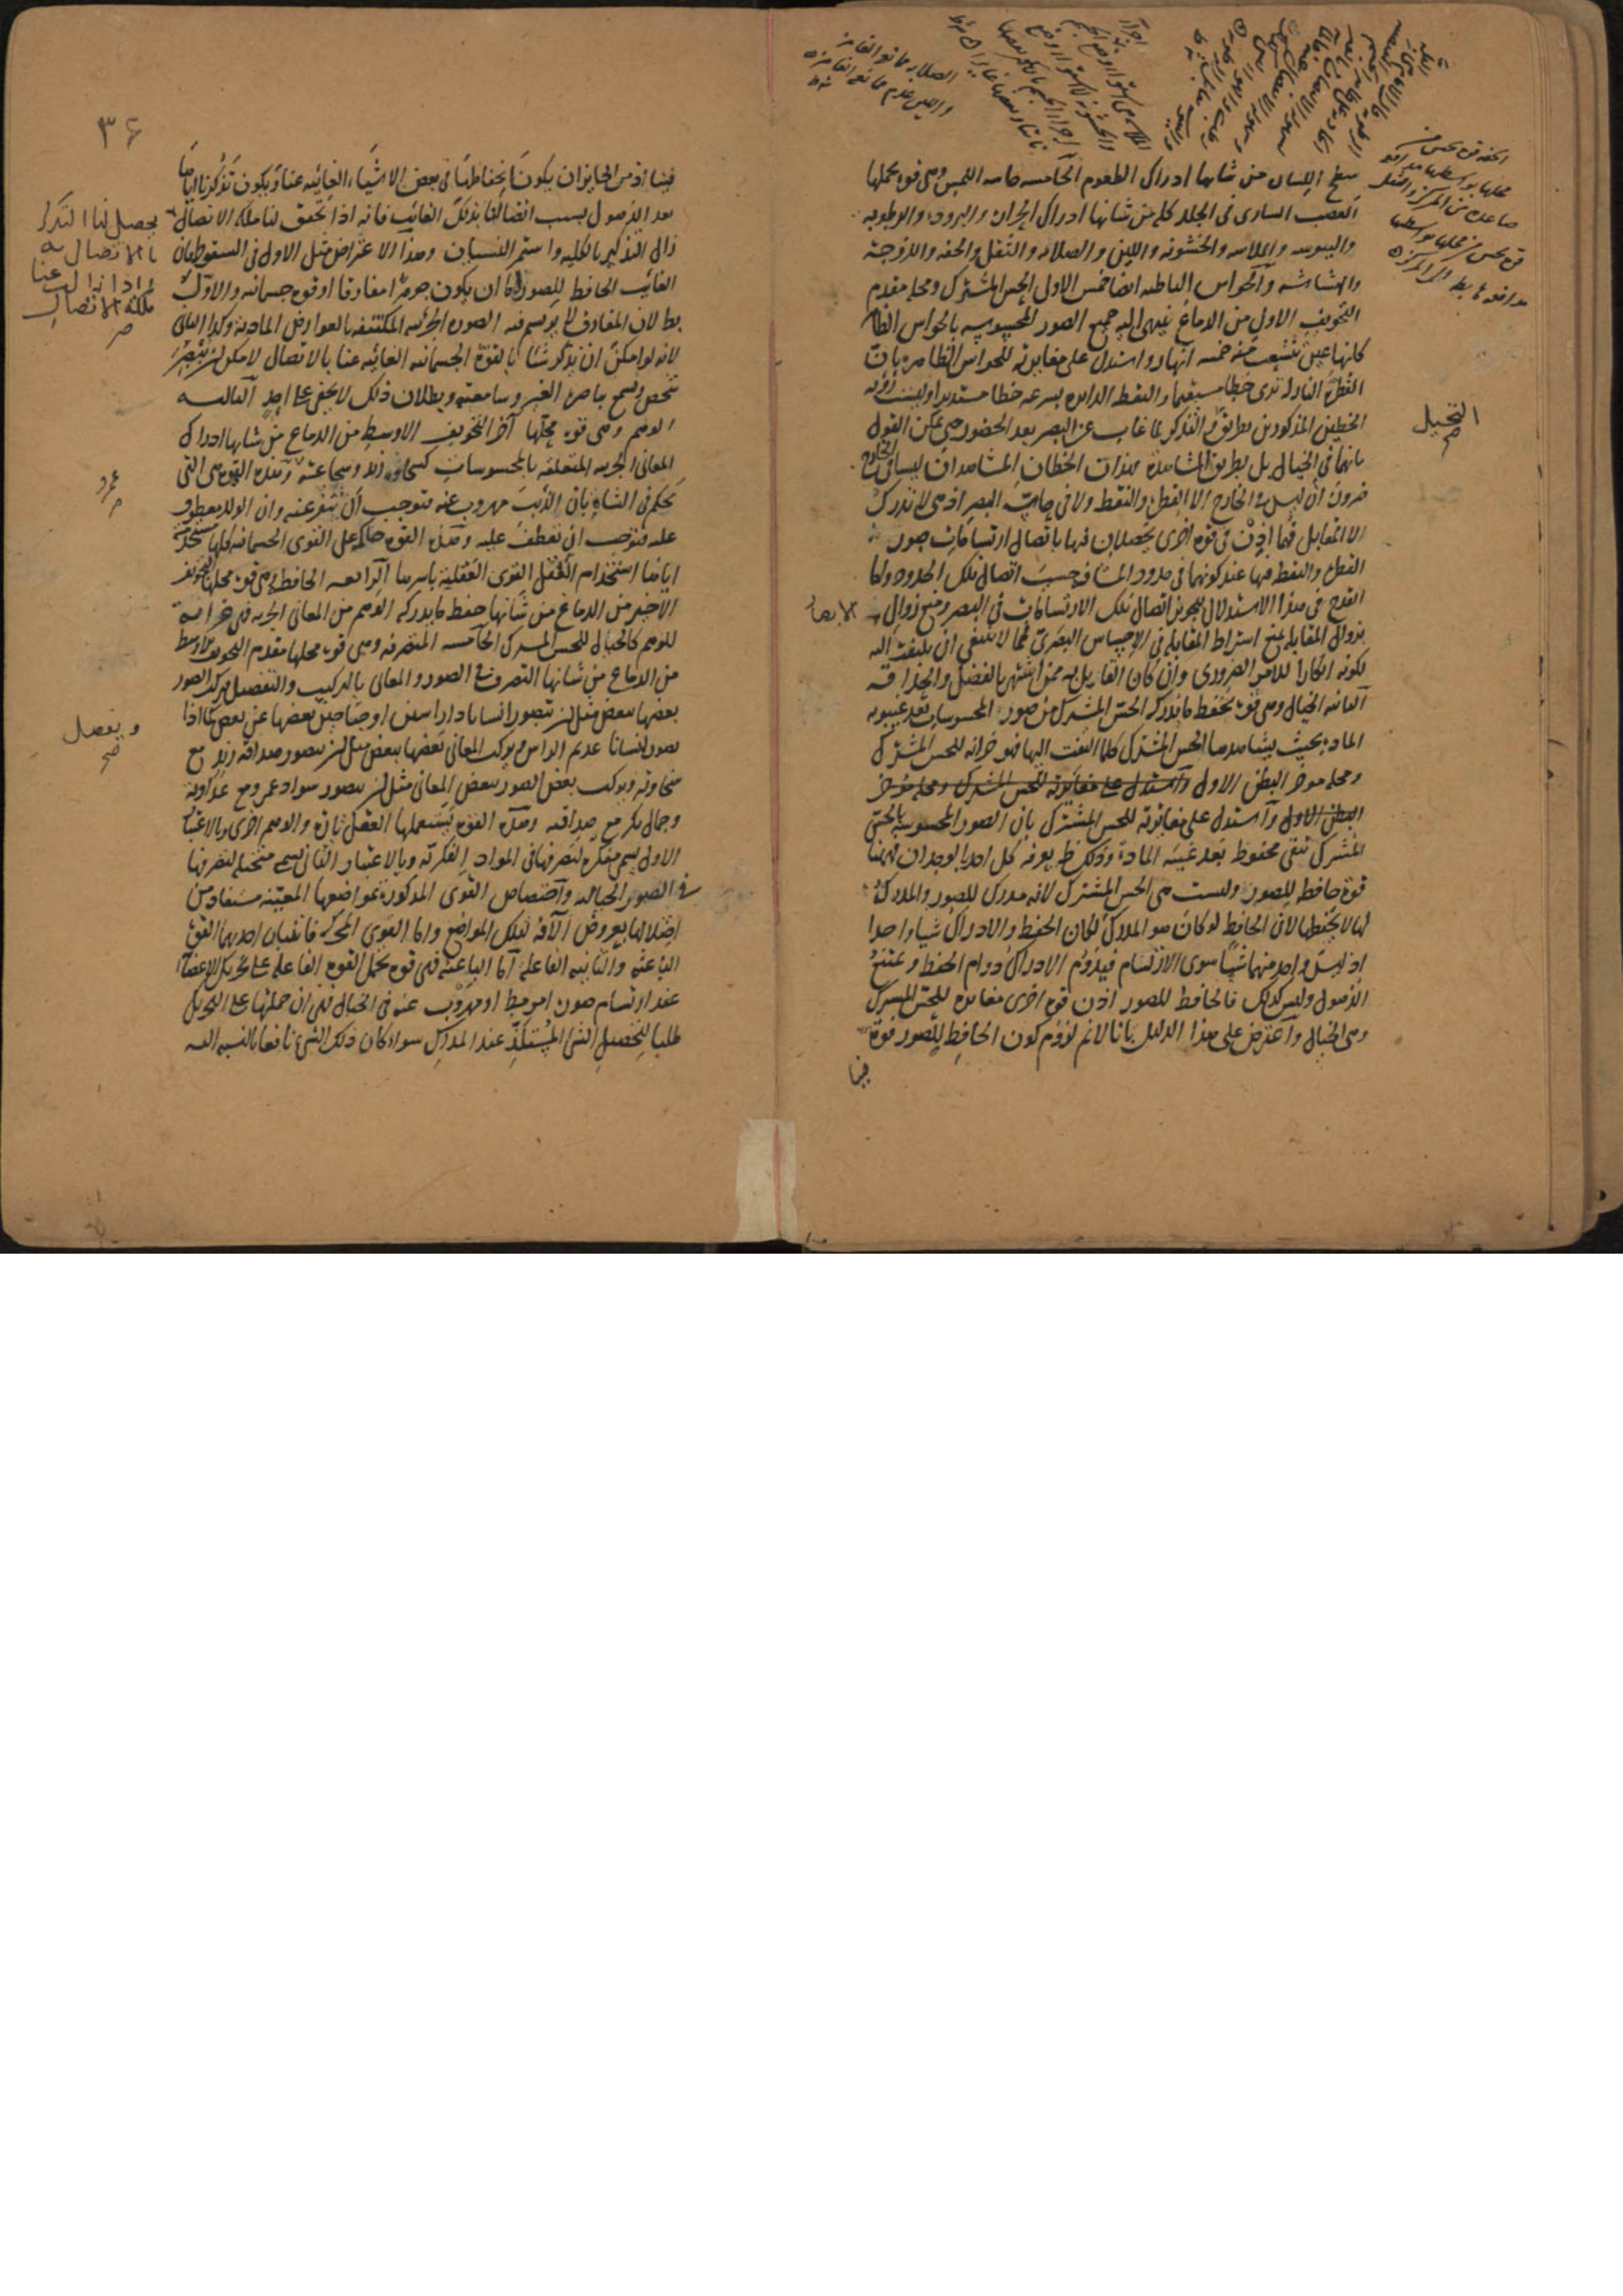 سطح اللسان من شانها ادراك الطعوم الخامسه حاسه اللمس وهي قوة محلها
العصب الساري في الجلد كله من شانها ادراك الحرارة والبرودة والرطوبه
واليبوسه والملاسه والخشونه واللين والصلابه والثقل والخفه واللزوجة
والهشاشه والحواس الباطنه ايضا خمس الاول الحس المشترك ومحله مقدم
التجويف الاول من الدماغ ينتهي اليه جميع الصور المحسوسه بالحواس الظاهرة
كانها عين تنشعب منه خمسه انهار واستدل على مغايرته للحواس الظاهره بان
القطرة النازلة ترى خطا مستقيما والنقطة الدايره بسرعه خطا مستديرا وليست رؤيه
الخطين المذكورين بطريق التذكر لما غاب عن البصر بعد الحضور حتى يمكن القول
بانهما في الخيال بل بطريق المشاهدة فهذان الخطان المشاهدان ليسا في الخارج
ضرورة ان ليس في الخارج الا القطرة والنقطة ولا في حاسة البصر اذ هي لا تدرك
الا المقابل فهما اذن في قوة اخرى يحصلان فيها باتصال ارتسامات صور
القطرة والنقطة فيها عند كونهما في حدود المسافة حسب اتصال تلك الحدود واما
القدح في هذا الاستدلال بتجويز اتصال تلك الارتسامات في البصر ومنع زوال
بزوال المقابلة بمنع اشتراط المقابلة في الاحساس البصري فمما لا ينبغي ان يلتفت اليه
لكونه انكارا للامر الضروري وان كان القايل به ممن اشتهر بالفضل والحذاقه
الثانيه الخيال وهي قوة تحفظ ما يدركه الحس المشترك من صور المحسوسات بعد غيبوبه
المادة بحيث يشاهدها الحس المشترك كلما التفت اليها فهو خزانه للحس المشترك
ومحله موخر البطن الاول واستدل على مغايرته للحس المشترك ومحله موخر
البطن الاول واستدل على مغايرته للحس المشترك بان الصور المحسوسة بالحس
المشترك تبقى محفوظة بعد غيبة المادة وذلك ظ يعرفه كل احد بالوجدان فههنا
قوة حافظة للصور وليست هي الحس المشترك لانه مدرك للصور والمدرك
لها لا يحفظها لان الحافظ لو كان هو المدرك لكان الحفظ والادراك شيئا واحدا
اذ ليس واحد منهما شيئا سوى الارتسام فيدوم الادراك دوام الحفظ ويمتنع
الذهول وليس كذلك فالحافظ للصور اذن قوة اخرى مغايره للحس المشترك
وهي الخيال واعترض على هذا الدليل بانا لا نم لزوم كون الحافظ للصور قوة
فينا
التخيل
الابصار
٣٦
فينا اذ من الجايز ان يكون انحفاظها في بعض الاشياء الغائبه عنا ويكون تذكرنا اياها
بعد الذهول بسبب اتصالنا بذلك الغائب فانه اذا تحقق لنا ملكة الاتصال
زال التذكر بالكليه واستمر النسيان وهذا الاعتراض مثل الاول في السقوط فان
الغائب الحافظ للصور اما ان يكون جوهرا مفارقا او قوة جسمانيه والاول
بط لان المفارق لا يرتسم فيه الصورة الجزئيه المكتنفه بالعوارض المادية وكذا الثاني
لانه لو امكن ان يذكر شيئا بالقوة الجسمانيه الغائبه عنا بالاتصال لامكن ان يبصر
شخص ويسمع باصرة الغير وسامعته وبطلان ذلك لا يخفى على احد الثالثه
الوهم وهي قوة محلها آخر التجويف الاوسط من الدماغ من شانها ادراك
المعاني الجزئيه المتعلقه بالمحسوسات كسخاوة زيد وشجاعته وهذه القوة هي التي
تحكم في الشاة بان الذئب مهروب عنه فتوجب ان تنفر عنه وان الولد معطوف
عليه فتوجب ان تعطف عليه وهذه القوة حاكمة على القوى الجسمانيه كلها مستخدمة
اياها استخدام العقل القوى العقلية باسرها الرابعه الحافظة وهي قوة محلها التجويف
الاخير من الدماغ من شانها حفظ ما يدركه الوهم من المعاني الجزئيه فهي خزانة
للوهم كالخيال للحس المشترك الخامسه المتصرفه وهي قوة محلها مقدم التجويف الاوسط
من الدماغ من شانها التصرف في الصور والمعاني بالتركيب والتفصيل فتركب الصور
بعضها ببعض مثل ان يتصور انسانا ذا راسين او جناحين بعضها عن بعض كما اذا
تصور انسانا عديم الراس ويركب المعاني بعضها ببعض مثل ان يتصور صداقة زيد مع
سخاوته ويركب بعض الصور ببعض المعاني مثل ان يتصور سواد عمرو مع عداوته
وجمال بكر مع صداقته وهذه القوة يستعملها العقل تارة والوهم اخرى وبالاعتبار
الاول يسمى مفكرة لتصرفها في المواد الفكرية وبالاعتبار الثاني يسمى متخيلة لتصرفها
في الصور الخياليه واختصاص القوى المذكورة بمواضعها المعينه مستفاد من
اختلالها بعروض الآفة لتلك المواضع واما القوى المحركة فاثنتان احديهما القوة
الباعثة والثانيه الفاعلة اما الباعثة فهي قوة تحمل القوة الفاعلة على تحريك الاعضاء
عند ارتسام صورة امر او مهروب عنه في الخيال فهي ان حملتها على التحريك
طلبا لتحصيل الشئ المستلذ عند المدرك سواء كان ذلك الشئ نافعا بالنسبه اليه
يحصل لنا التذكر
بالاتصال به
واذا زال عنا
ملكة الاتصال
عمرو
ويفصل
صح